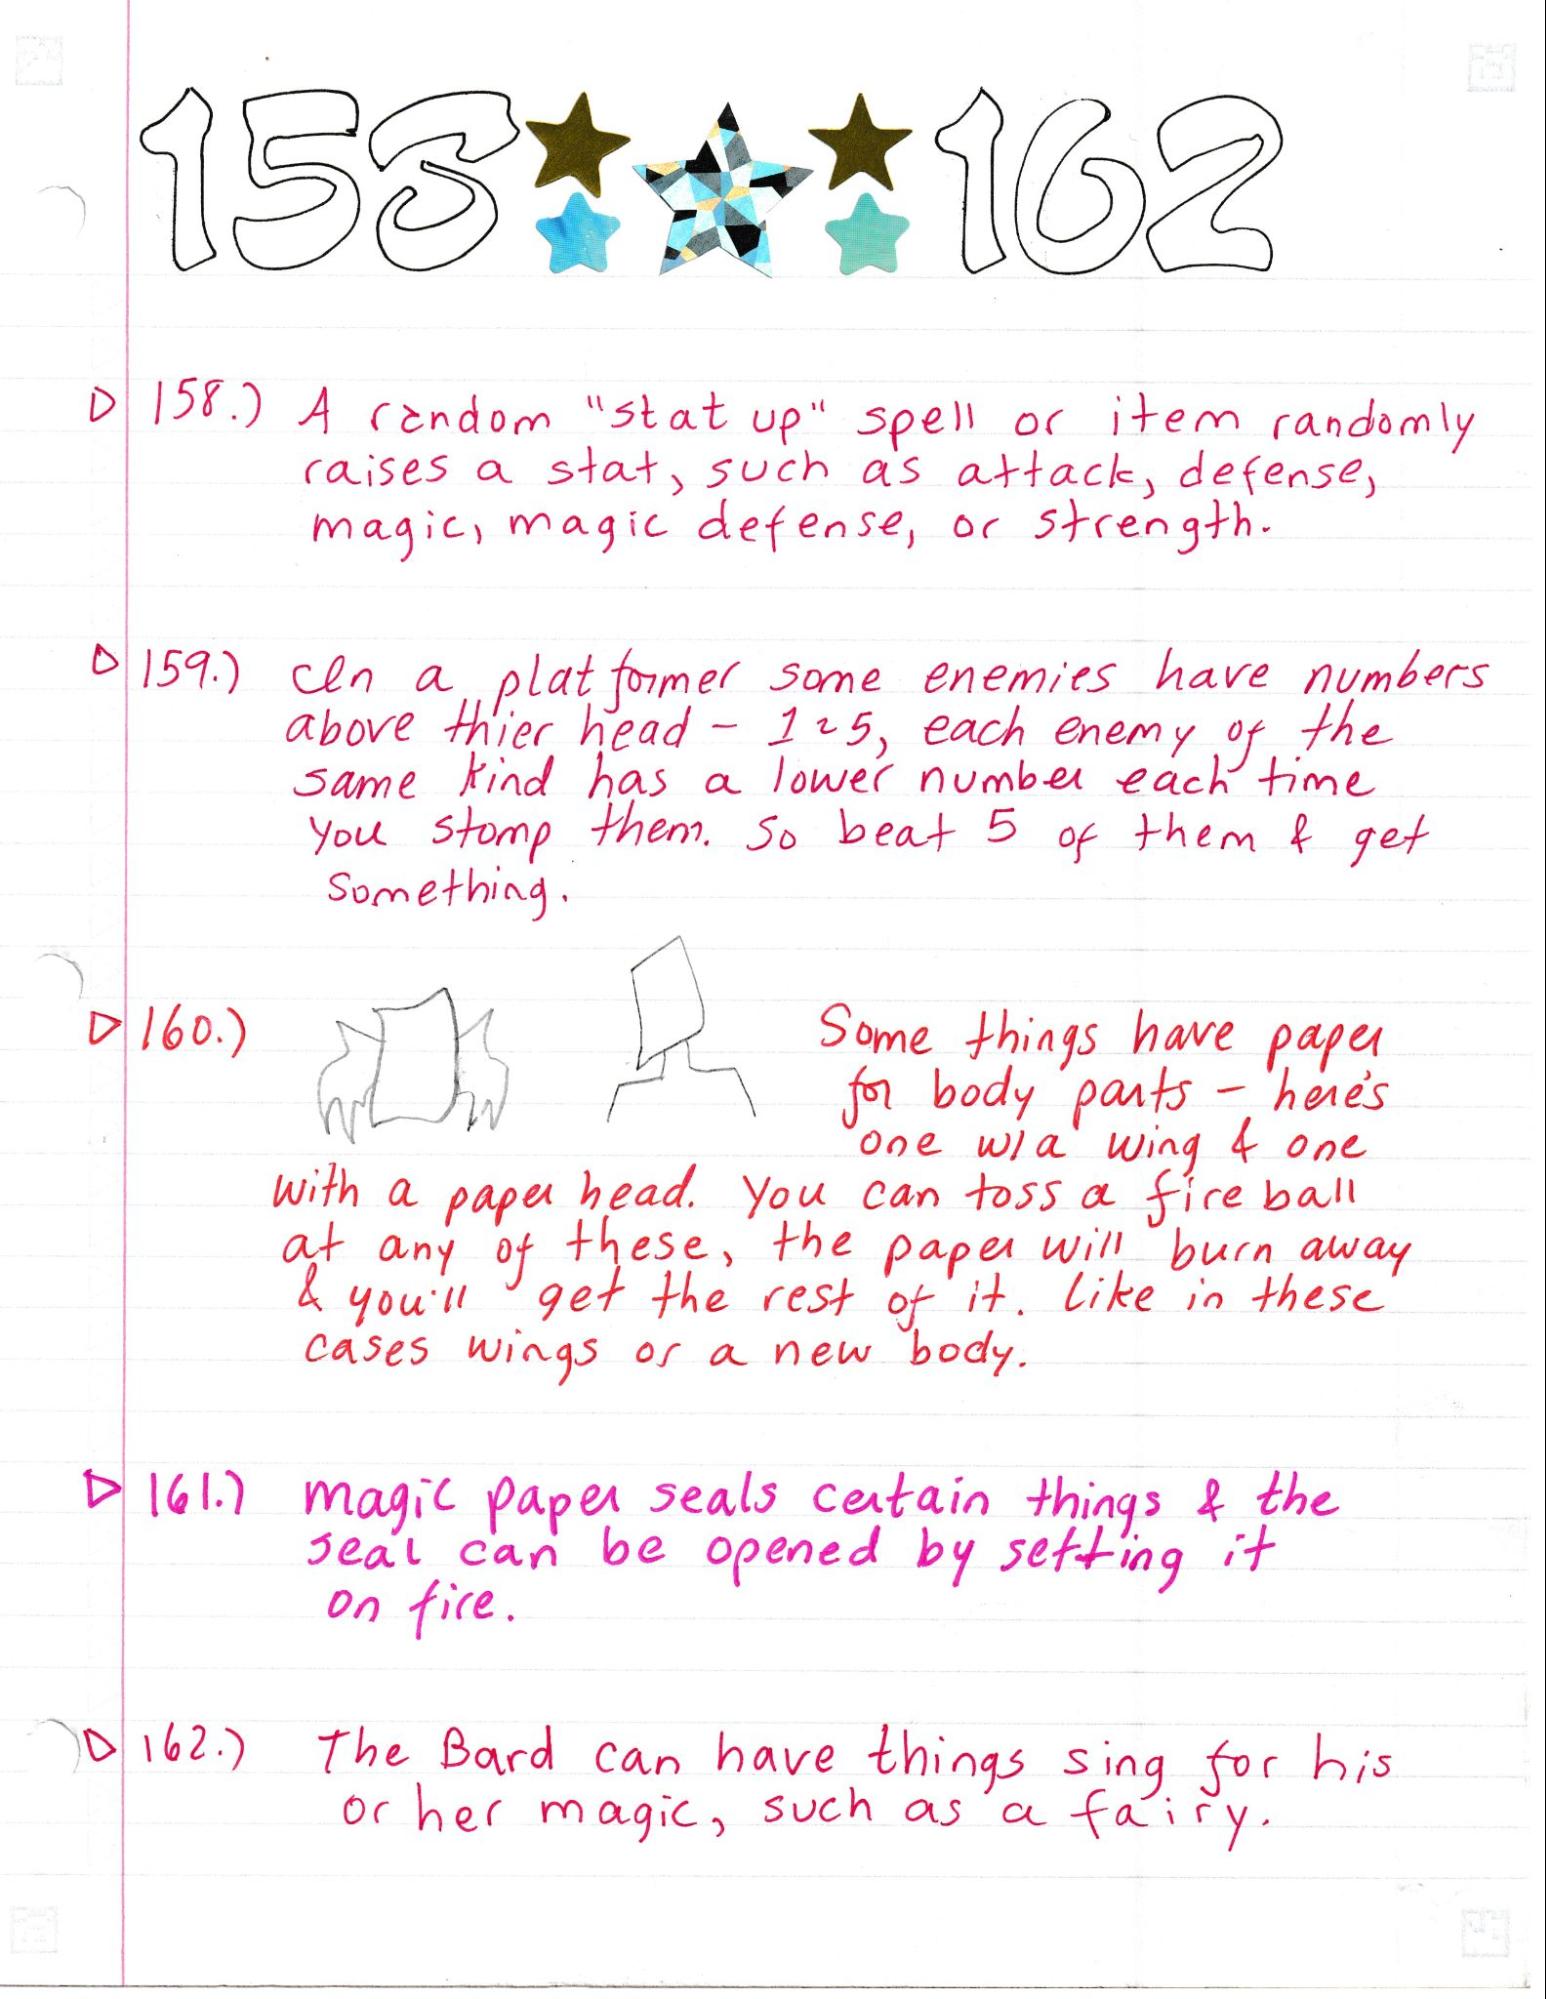 158 162
158.) A random "stat up" spell or item randomly
raises a stat, such as attack, defense,
magic, magic defense, or strength.
159.) In a platformer some enemies have numbers
above thier head - 1-5, each enemy of the
same kind has a lower number each time
you stomp them. So beat 5 of them & get
something.
160.) Some things have paper
for body parts - here's
one w/a wing & one
with a paper head. You can toss a fire ball
at any of these, the paper will burn away
& you'll get the rest of it. Like in these
cases wings or a new body.
161.) magic paper seals certain things & the
seal can be opened by setting it
on fire.
162.) The Bard can have things sing for his
or her magic, such as a fairy.